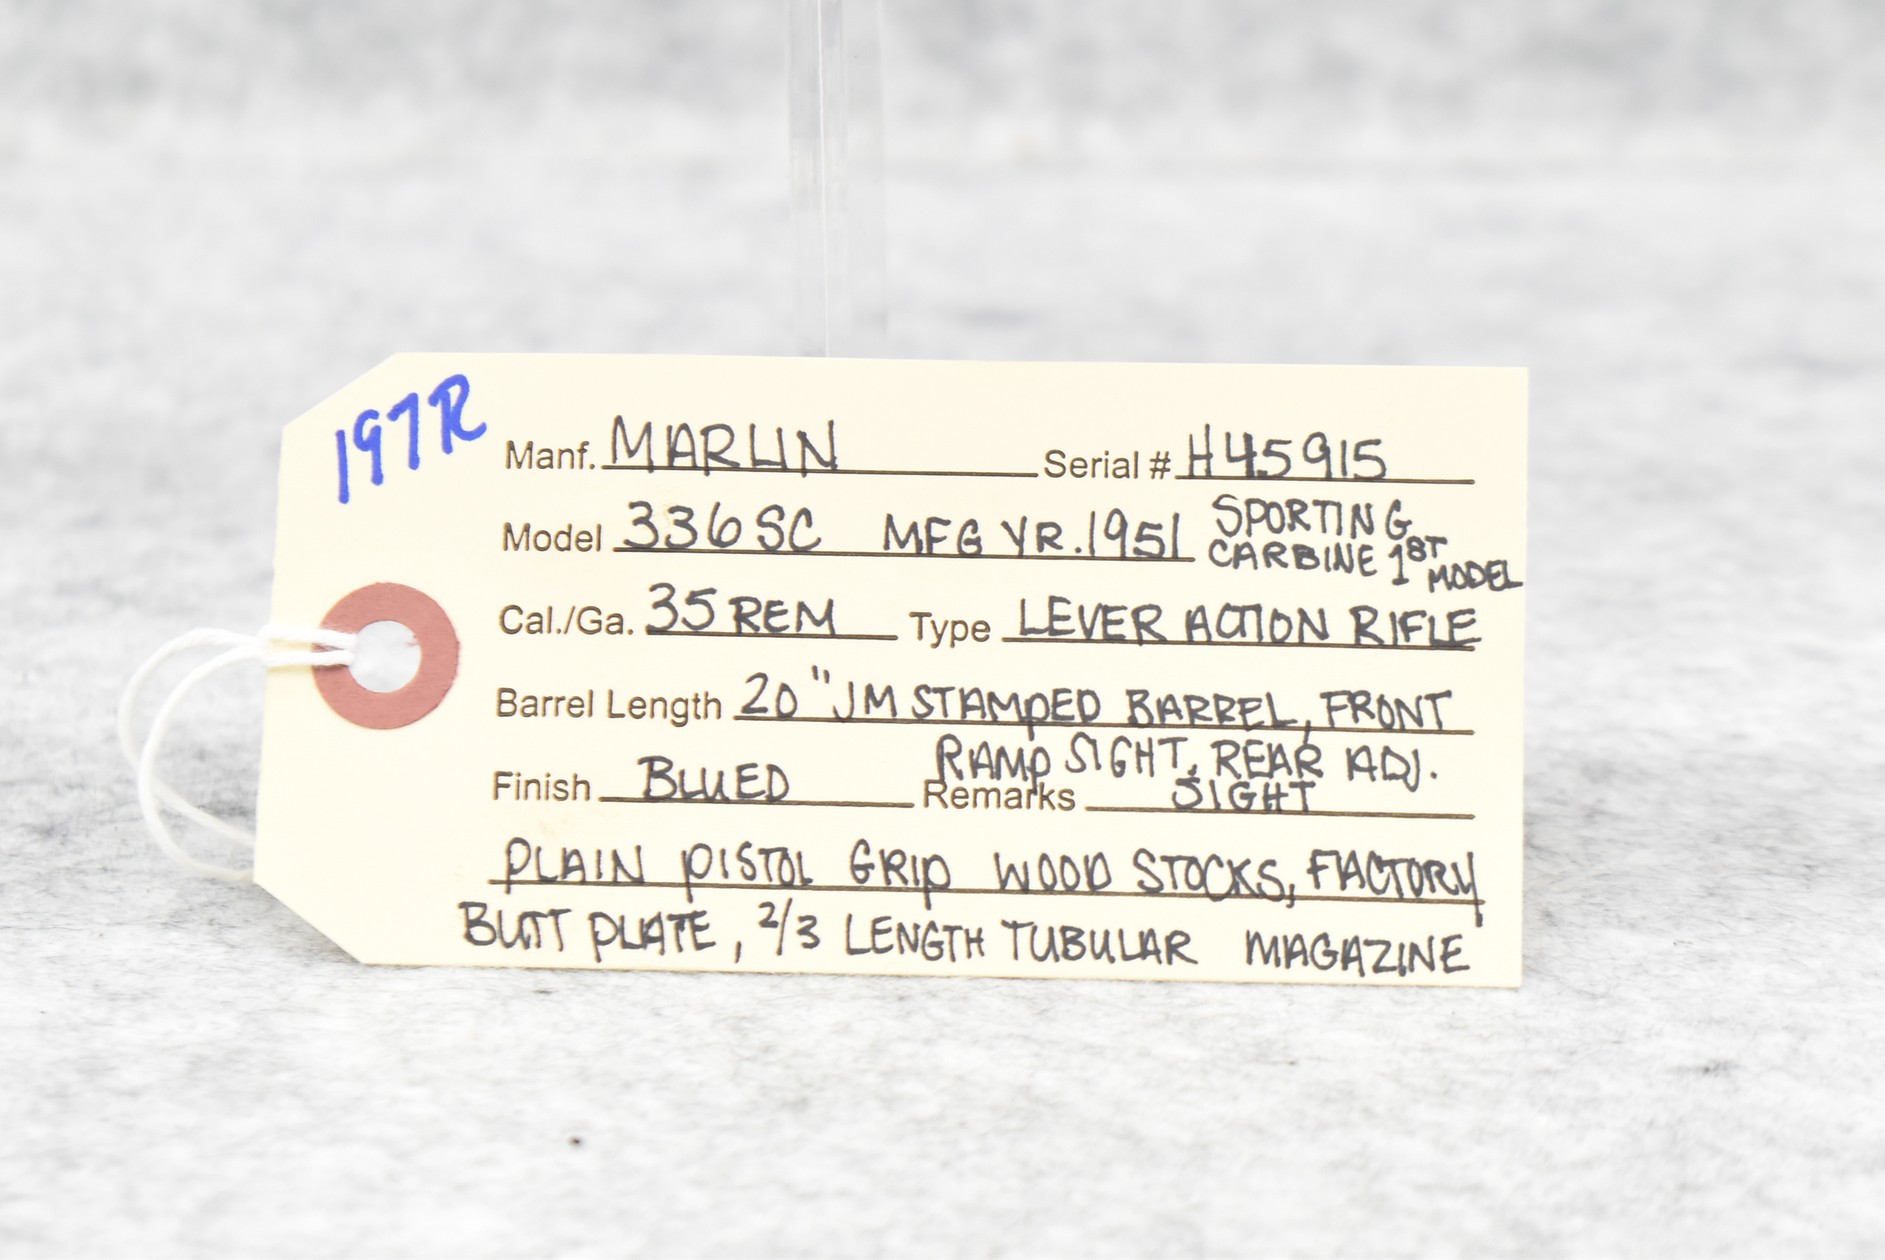 197R
Manf. MARLIN Serial # H45915
Model 336SC MFG YR. 1951 SPORTING
CARBINE 1ST MODEL
Cal./Ga. 35 REM Type LEVER ACTION RIFLE
Barrel Length 20" JM STAMPED BARREL, FRONT
RAMP SIGHT, REAR ADJ.
Finish BLUED Remarks SIGHT
PLAIN PISTOL GRIP WOOD STOCKS, FACTORY
BUTT PLATE, 2/3 LENGTH TUBULAR MAGAZINE